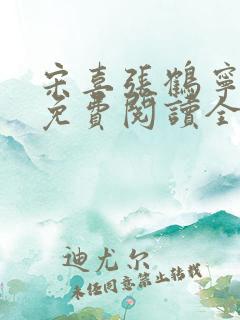 宋喜張鶴寧
免費閱讀全
迪尤尔
未经同意禁止转载